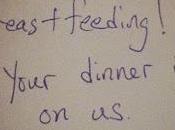 reastfeeding!
Your dinner
on us.